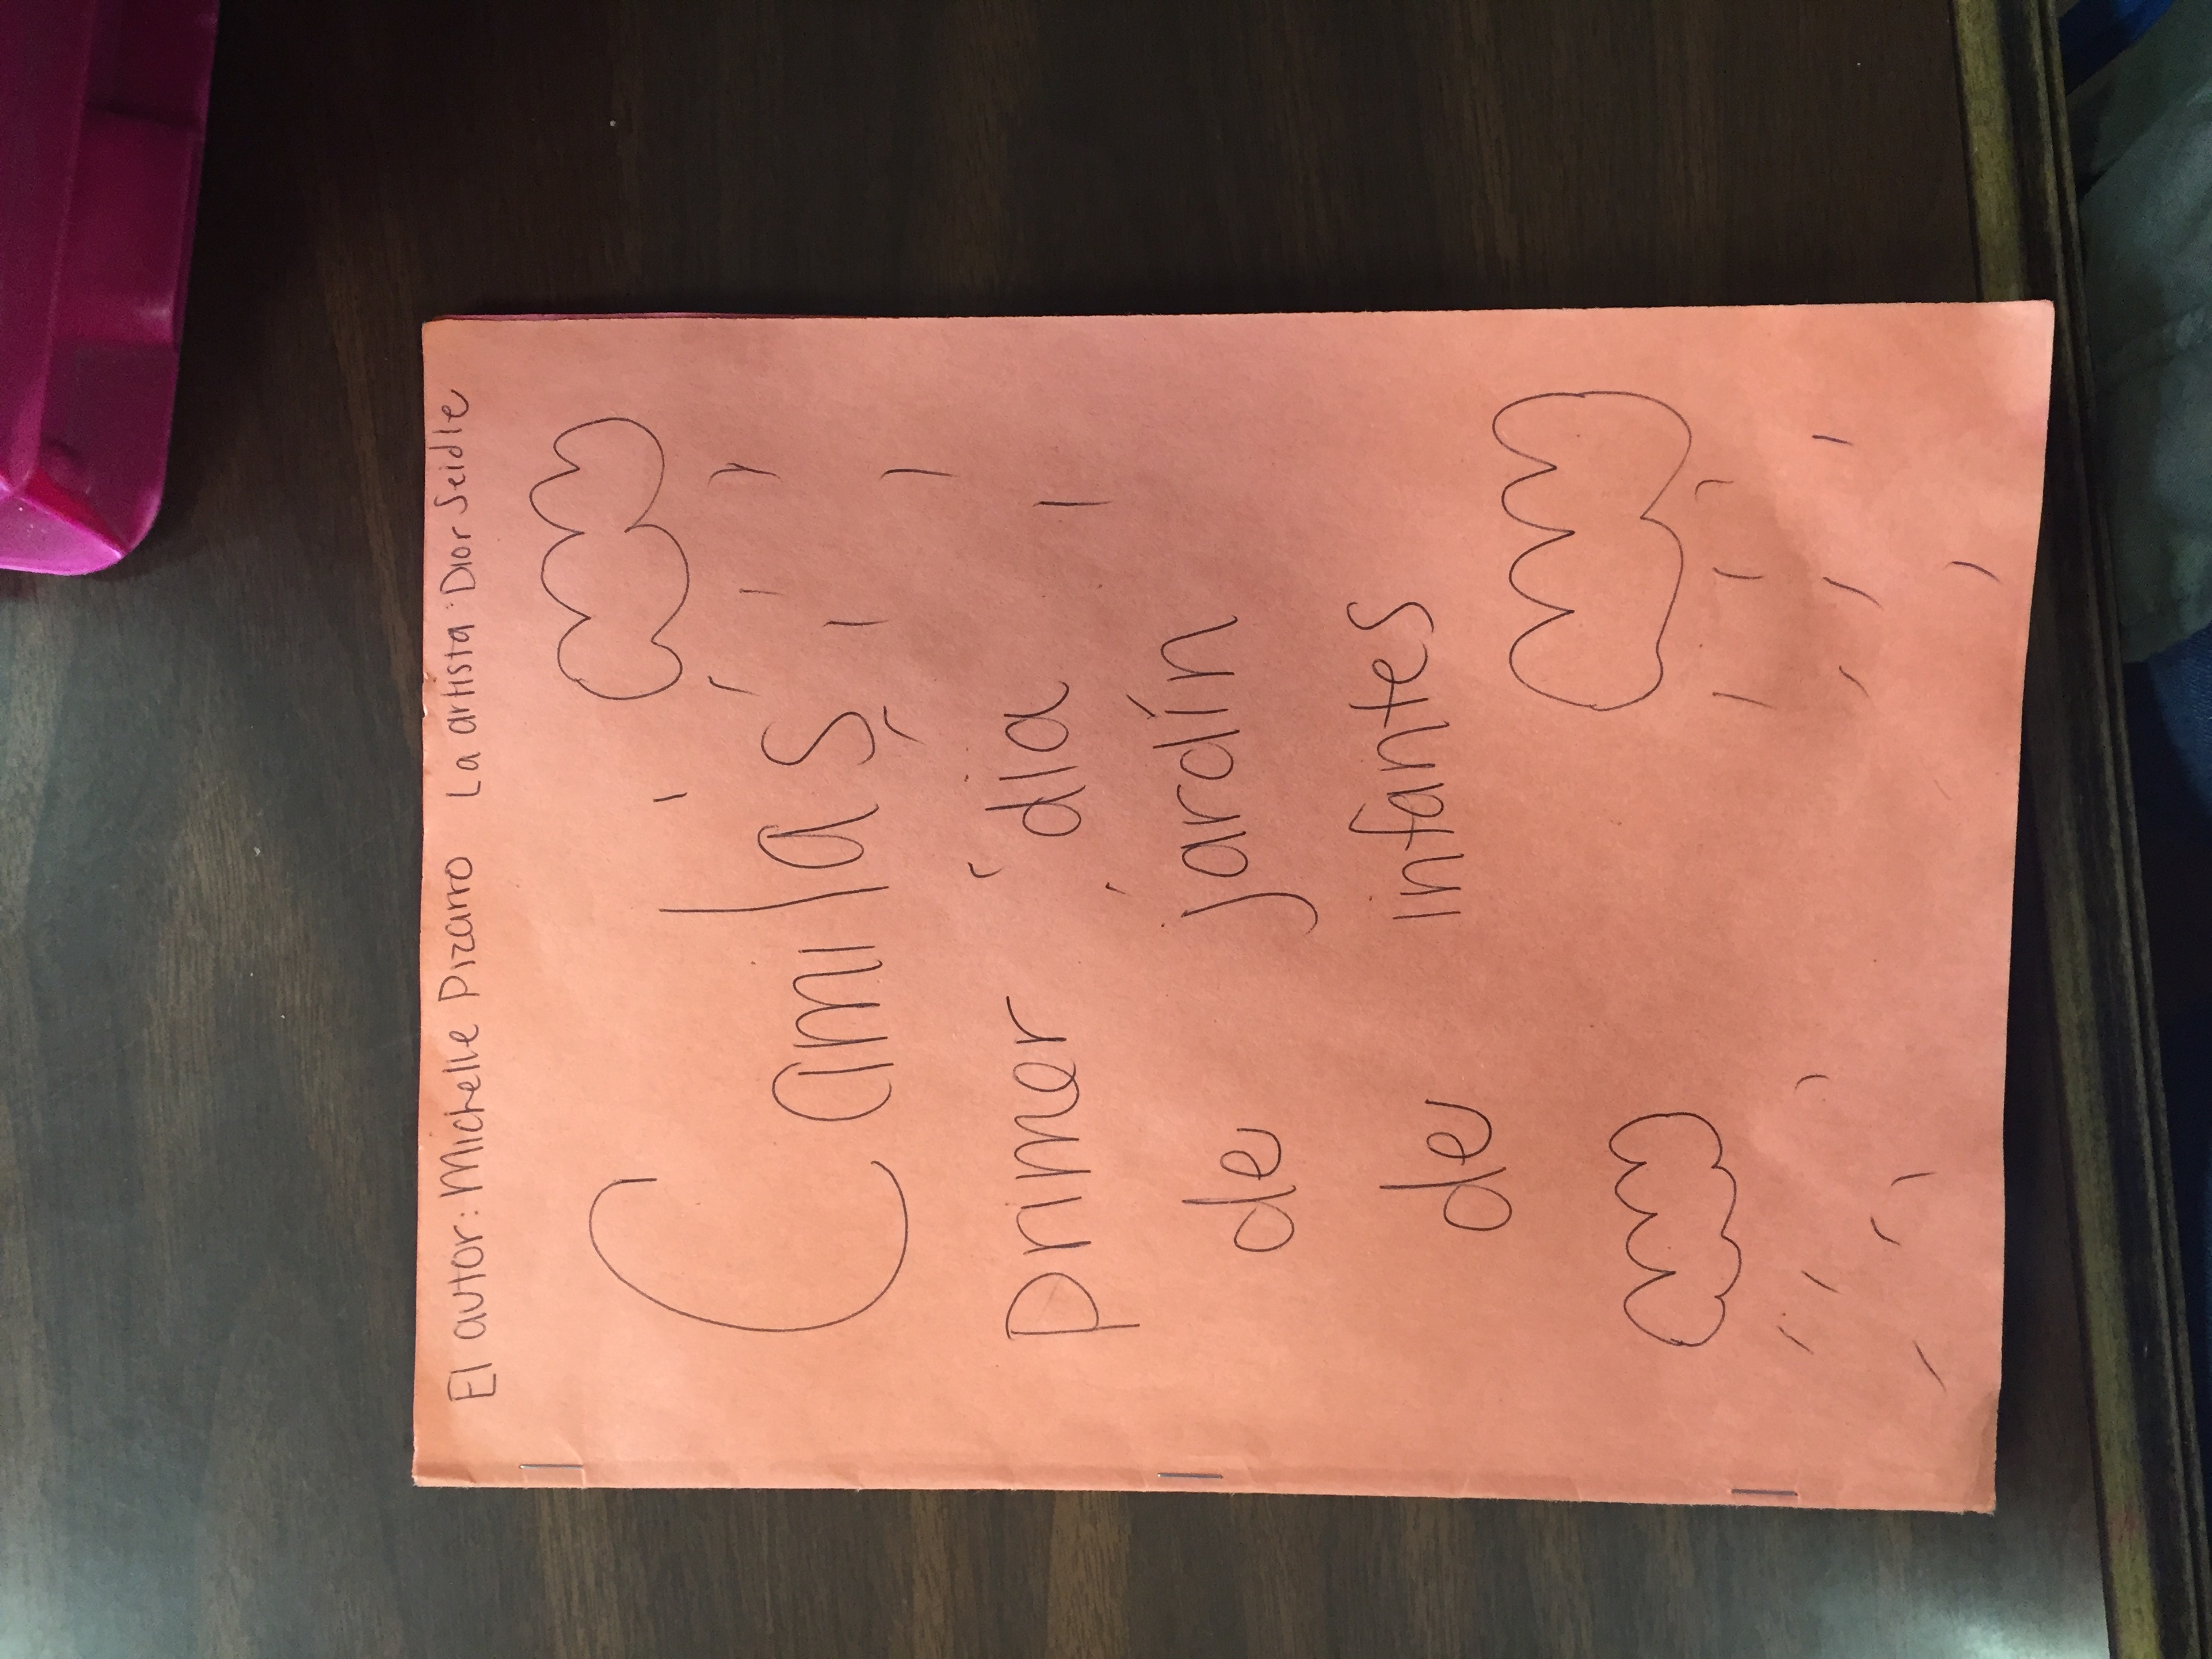 El autor: Michelle Pizarro La artista: Dior Seidle
Camila's
primer día
de jardín
de infantes